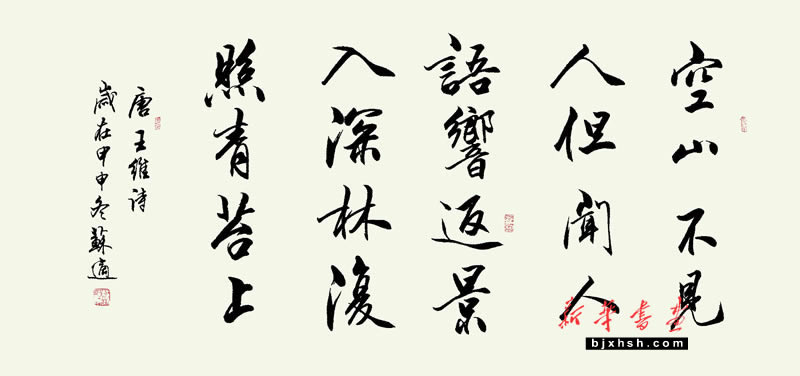 空山不見
人但聞人
語響返景
入深林復
照青苔上
唐王維诗
歲在甲申冬蘇適
新华書画
bjxhsh.com